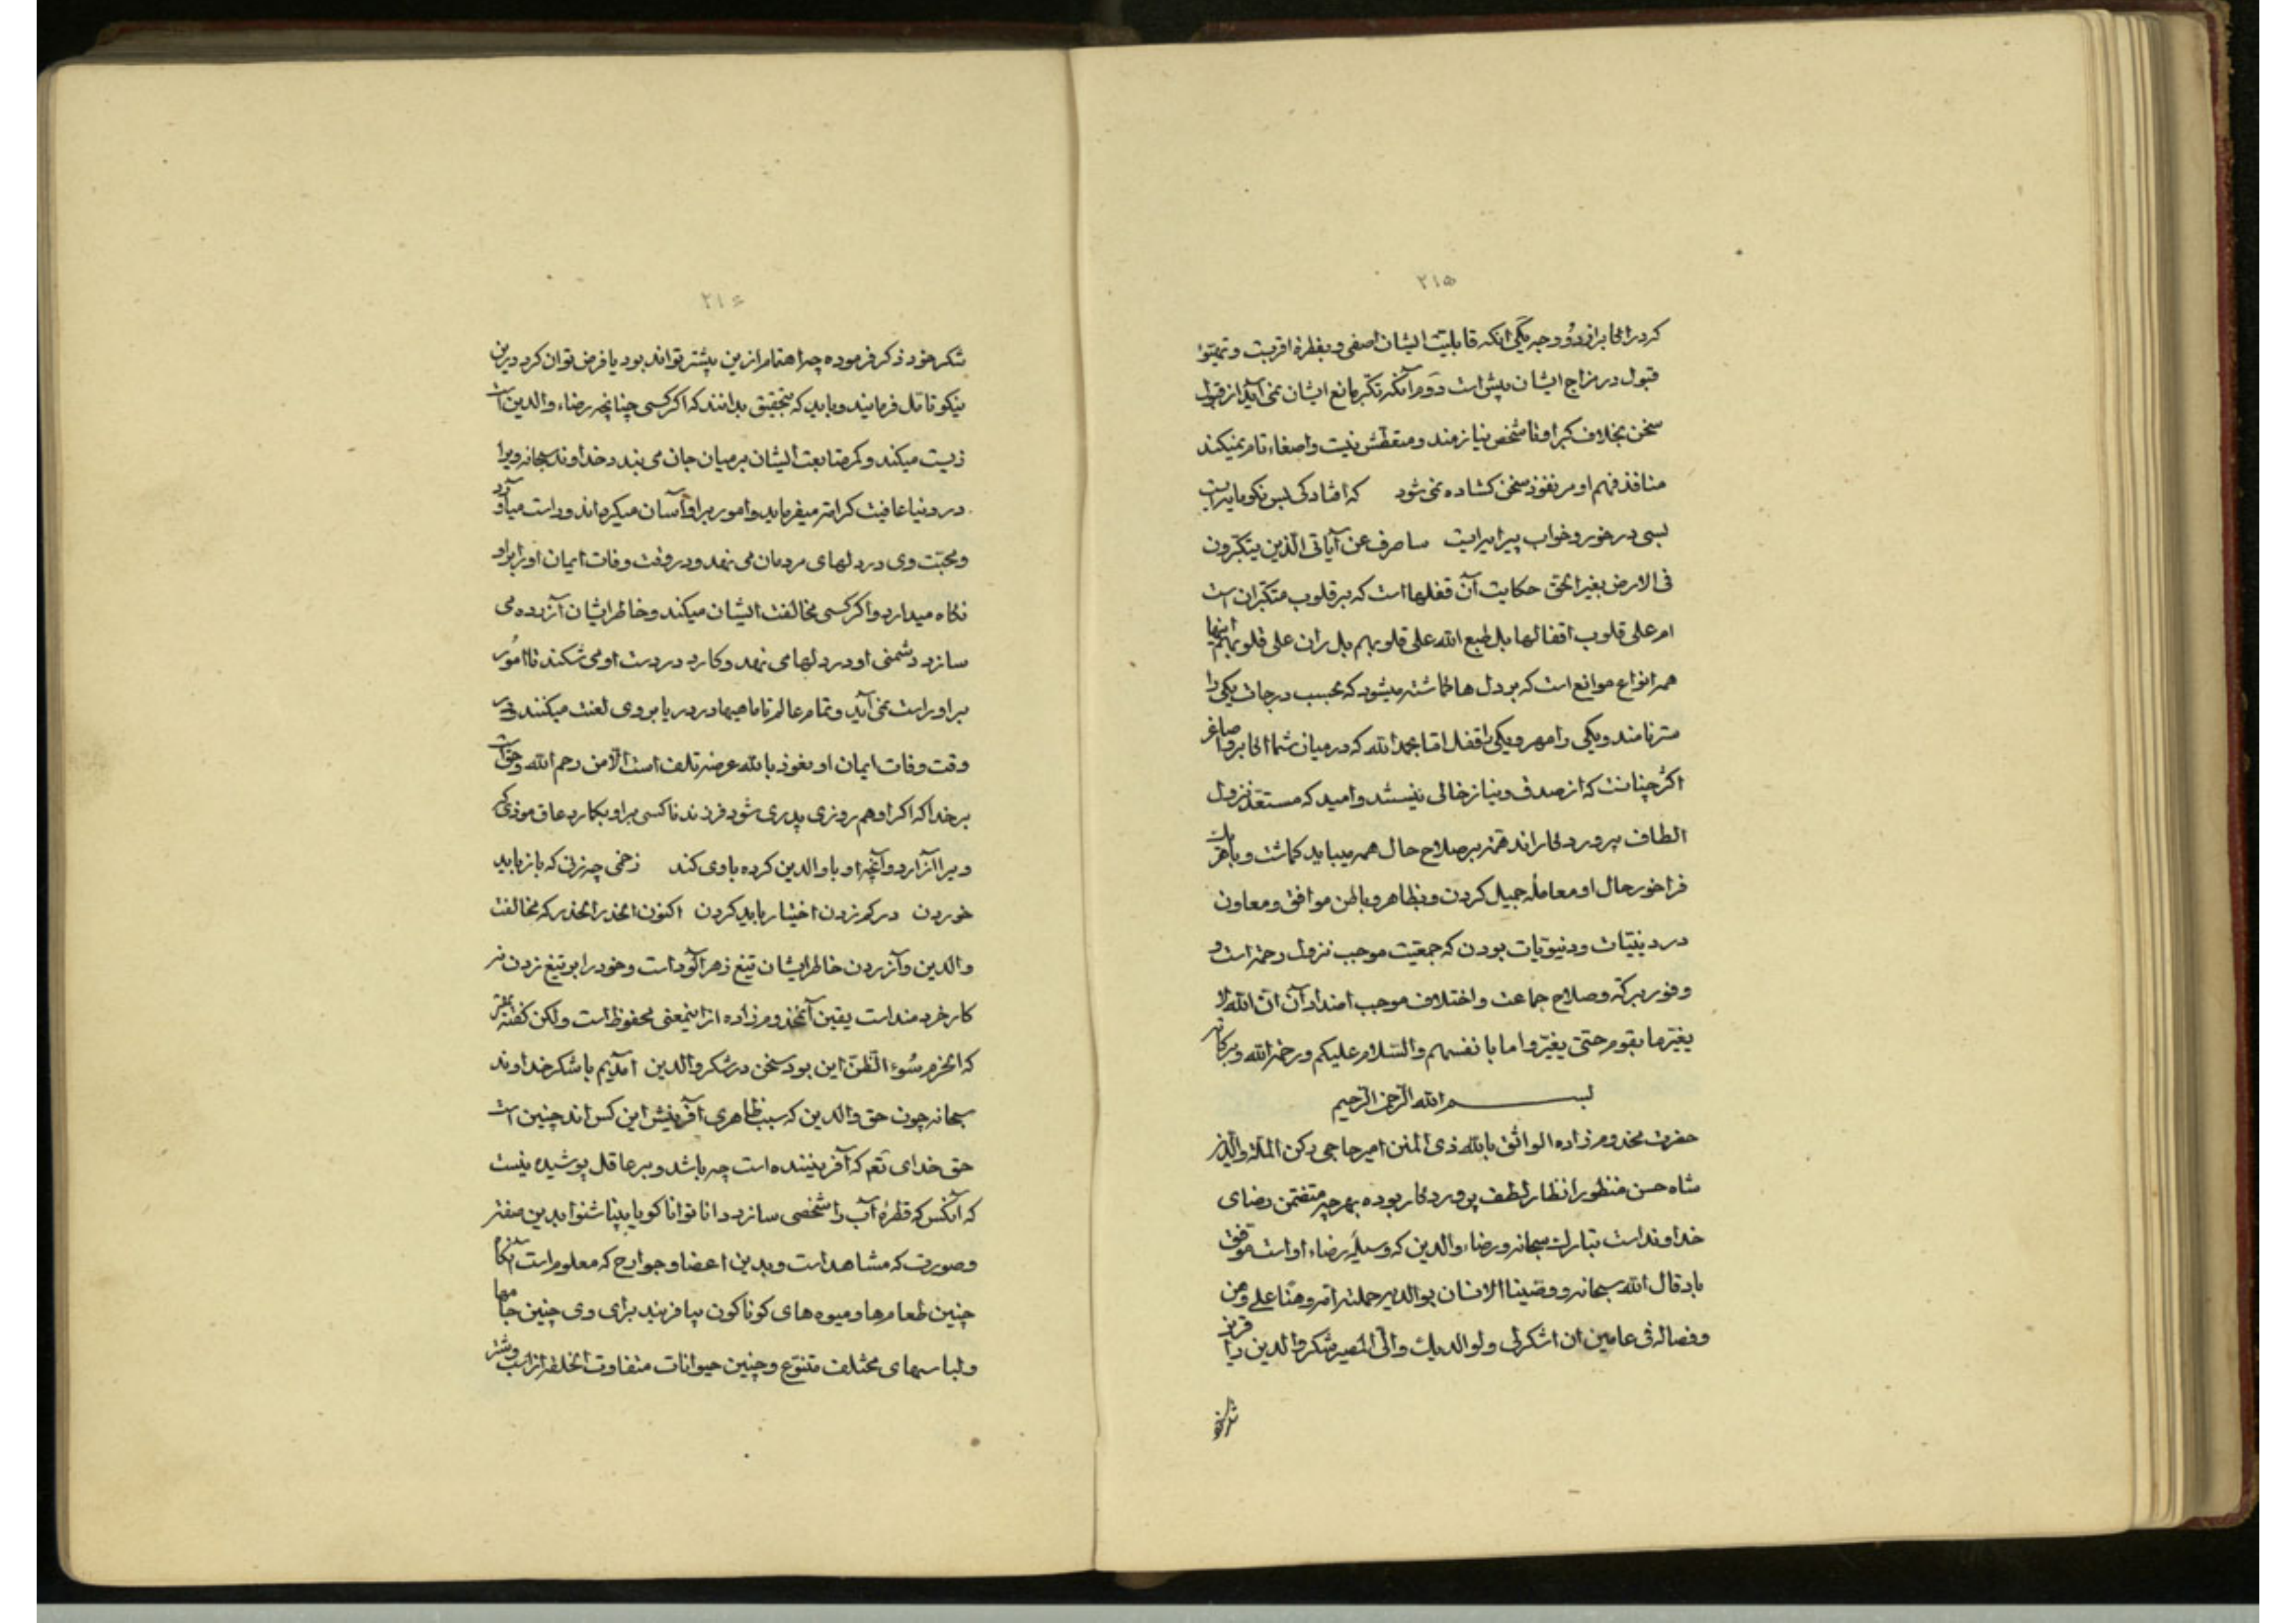 ۲۱۵
کرد راکابر از دو وجه یکی آنکه قابلیت ایشان اصفی و بفطرة اقربست و تهیؤ
قبول در مزاج ایشان بیش است دوم آنکه تکبر مانع ایشان نمی آید از قبول
سخن بخلاف کبرا و تا شخص نیازمند و متعطش نیست واصغاء تام نمیکند
منافذ فهم او مر نفوذ سخن کشاده نمی شود که افتادکی بس نکو مایه ایست
بسی در خور و خواب پیرایه ایست ساصرف عن آیاتی الذین یتکبرون
فی الارض بغیر الحق حکایت آن قفلها است که بر قلوب متکبران است
ام علی قلوب اقفالها بل طبع الله علی قلوبهم بل ران علی قلوبهم اینها
همه انواع موانع است که بر دل ها کماشته میشود که بحسب درجات یکی را
ستر نامند و یکی را مهر و یکی را قفل اما بحمدالله که در میان شما اکابر و اصاغر
اکثر چنانند که از صدق و نیاز خالی نیستند و امید که مستعد نزول
الطاف پروردکاراند همة بر صلاح حال همه میباید کماشت و با هر یک
فراخور حال او معامله جمیل کردن و بظاهر و باطن موافق و معاون
در دینیات و دنیویات بودن که جمعیت موجب نزول رحمة است و
وفور برکة وصلاح جماعت و اختلاف موجب اضداد آن ان الله لا
یغیر ما بقوم حتی یغیروا ما بانفسهم والسلام علیکم ورحمة الله وبرکاته
بسم الله الرحمن الرحیم
حضرت مخدوم زاده الواثق بالله ذی المنن امیر حاجی رکن الملة والدین
شاه حسن منظور انظار لطف پروردکار بوده بهرچه متضمن رضای
خداوند است تبارک سبحانه ورضاء والدین که وسیلۀ رضاء او است موفق
باد قال الله سبحانه ووصینا الانسان بوالدیه حملته امه وهنا علی وهن
وفصاله فی عامین ان اشکرلی ولوالدیک والی المصیر شکر والدین را قرین
شکر خود
۲۱۶
شکر خود ذکر فرموده چه اهتمام ازین بیشتر تواند بود یا فرض توان کرد درین
نیکو تامل فرمایند و باید که بتحقیق بدانند که اکر کسی چنانچه رضاء والدین است
زیست میکند و کمر متابعت ایشان بر میان جان می بندد خداوند سبحانه ویرا
در دنیا عافیت کرامة میفرماید و امور بر او آسان میکرداند و راست می‌آورد
و محبت وی در دلهای مردمان می نهد و در وقت وفات ایمان او را بر او
نکاه میدارد و اکر کسی مخالفت ایشان میکند و خاطر ایشان آزرده می
سازد دشمنی او در دلها می نهد و کارد در دست او می شکند تا امور
بر او راست نمی آید و تمام عالم تا ماهیها در دریا بر وی لعنت میکنند و در
وقت وفات ایمان او نعوذ بالله عرضه تلف است الا من رحم الله و حق است
بر خدا که اکر او هم روزی پدری شود فرزند ناکسی بر او بکمارد عاق موذی که
ویرا آزارد و آنچه او با والدین کرده با وی کند زخمی چه زنی که باز باید
خوردن در کم زدن اختیار باید کردن اکنون الحذر الحذر که مخالفت
والدین و آزردن خاطر ایشان تیغ زهرآلود است و خود را بر تیغ زدن نه
کار خردمند است یقین آن مخدوم زاده از اینمعنی محفوظ است ولکن کفته‌اند
که الحزم سوء الظن این بود سخن در شکر والدین آمدیم با شکر خداوند
سبحانه چون حق والدین که سبب ظاهری آفرینش این کس اند چنین است
حق خدای تعم که آفریننده است چه باشد و بر عاقل پوشیده نیست
که آنکس که قطرۀ آب را شخصی سازد دانا توانا کویا بینا شنوا بدین صفة
وصورت که مشاهد است و بدین اعضا و جوارح که معلوم است آنکاه
چنین طعامها و میوه های کوناکون بیافریند برای وی چنین جامها
و لباسهای مختلف متنوع و چنین حیوانات متفاوت الخلقه از اسب و شتر